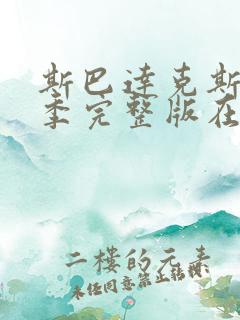 斯巴达克斯
季完整版在
二楼的元素
未经同意禁止转载